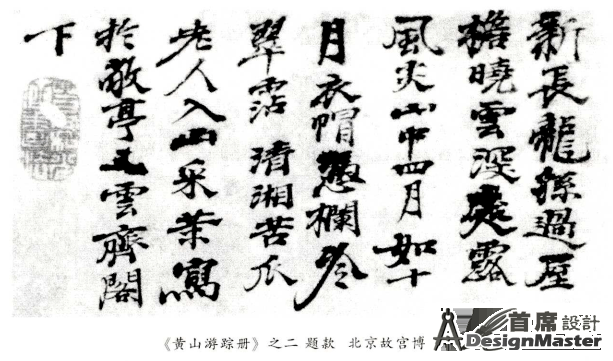 新長龍孫過屋
檐曉雲深處露
風炎山中四月如十
月衣帽憑欄冷
翠霑 清湘苦瓜
老人入山采藥寫
於敬亭之雲齊閣
下
《黄山游踪册》之二 题款 北京故宫博
首席設計
DesignMaster